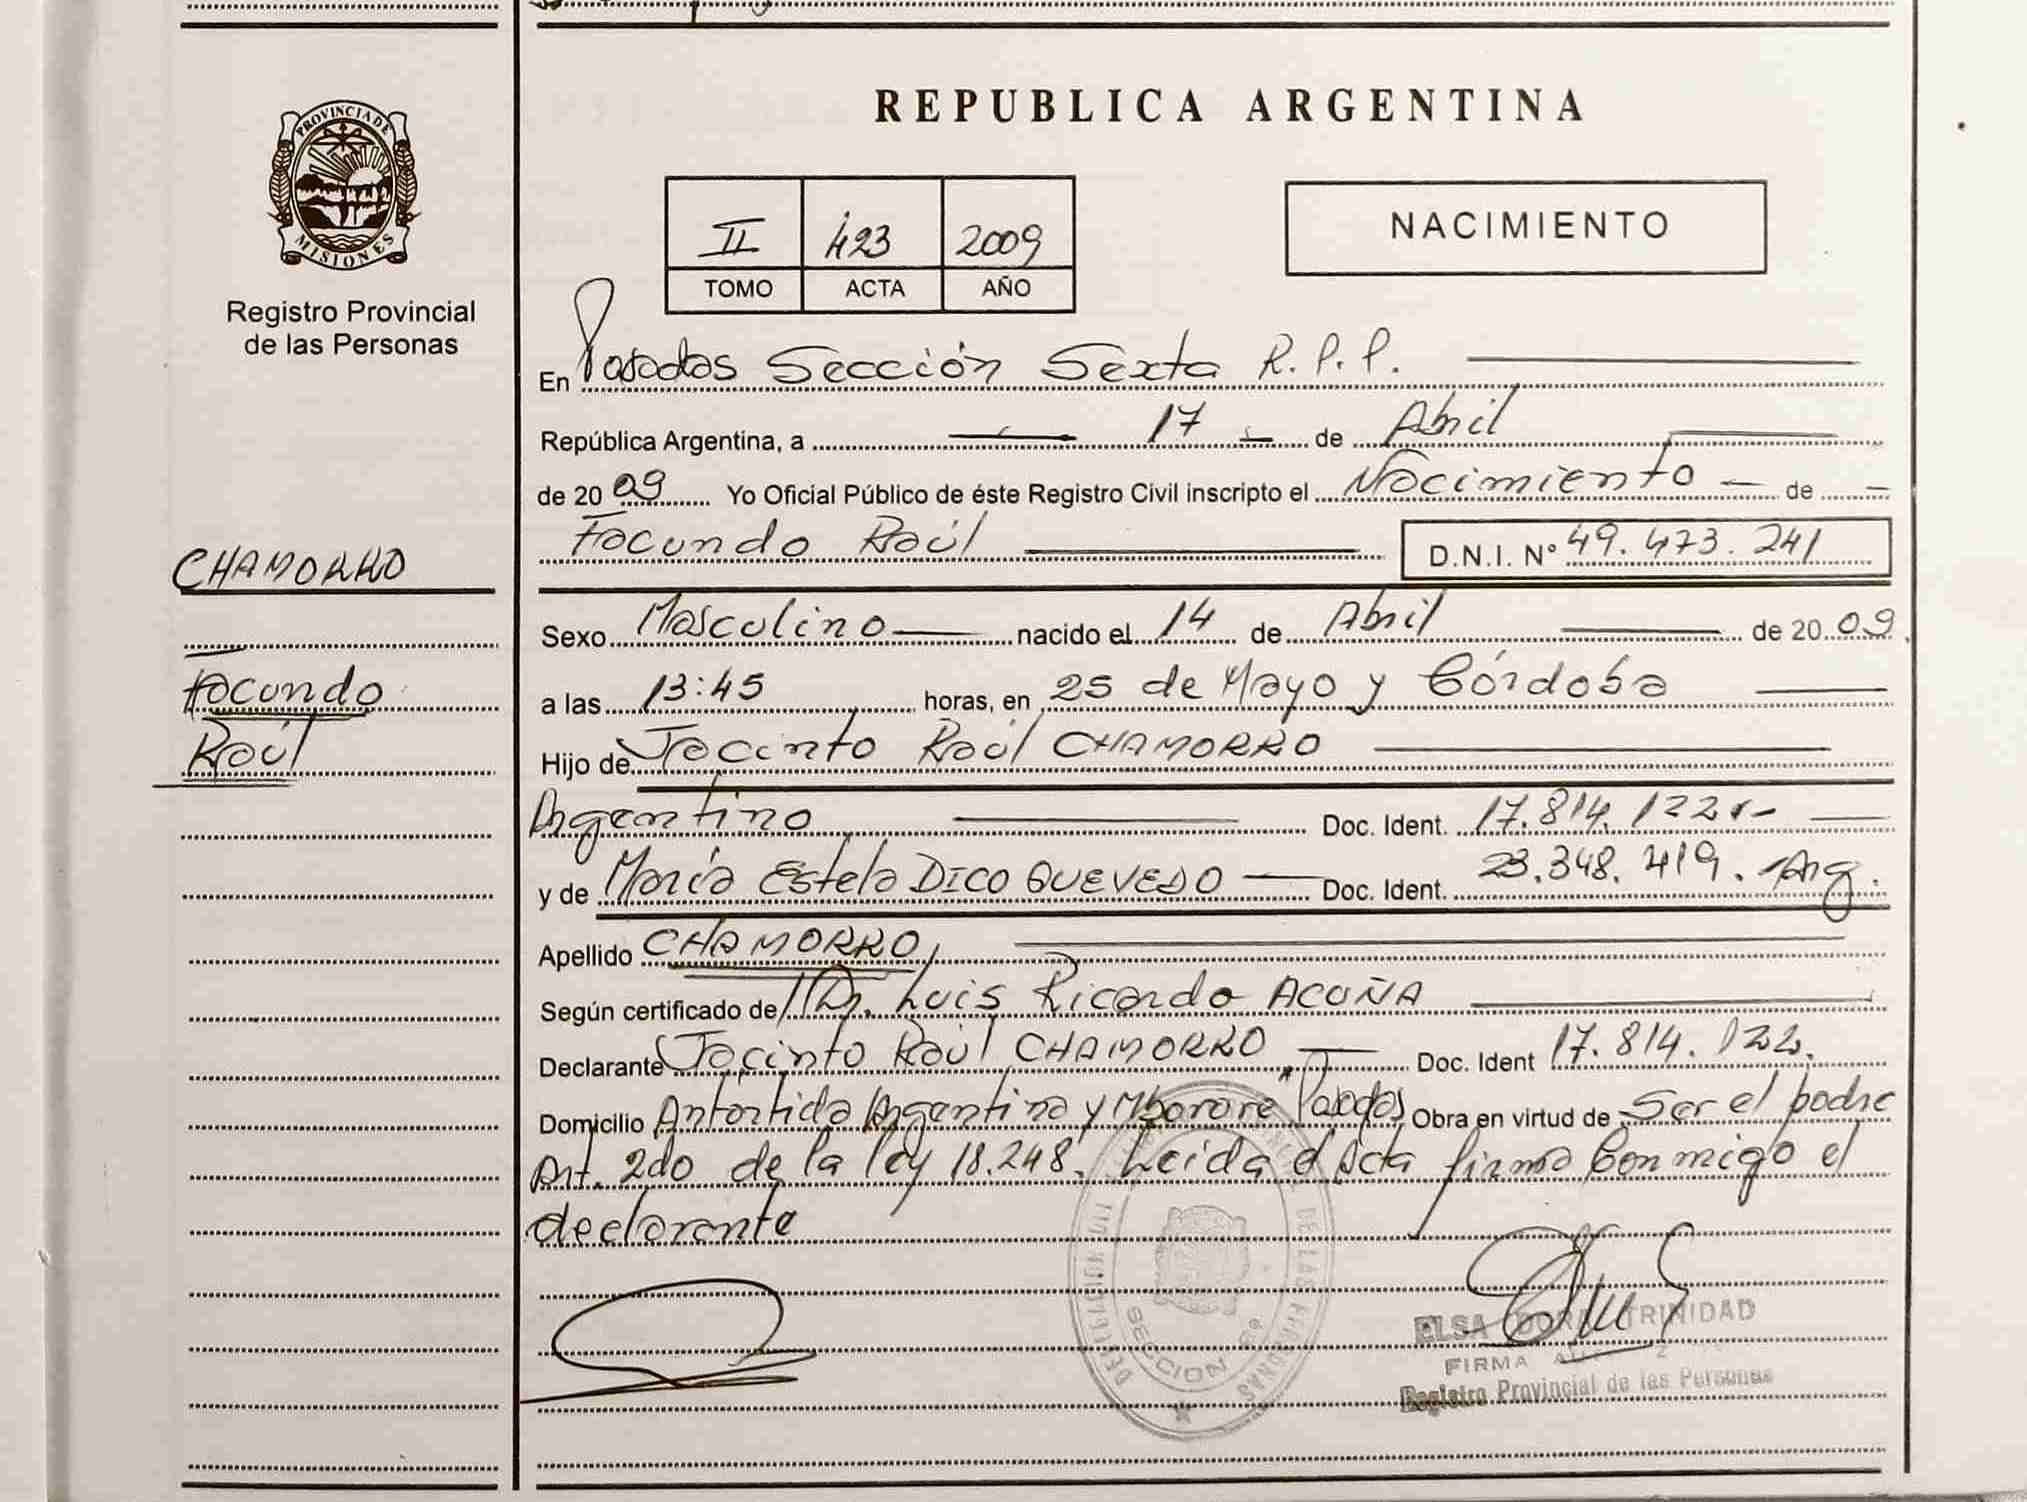 PROVINCIA DE
MISIONES
Registro Provincial
de las Personas
CHAMORRO
Facundo
Raúl
REPUBLICA ARGENTINA
II 423 2009
TOMO ACTA AÑO
NACIMIENTO
En Posadas Sección Sexta R.P.P.
República Argentina, a 17 de Abril
de 2009 Yo Oficial Público de éste Registro Civil inscripto el Nacimiento de
Facundo Raúl D.N.I. Nº 49.473.241
Sexo Masculino nacido el 14 de Abril de 2009.
a las 13:45 horas, en 25 de Mayo y Córdoba
Hijo de Jacinto Raúl CHAMORRO
Argentino Doc. Ident. 17.814.122
y de María Estela DICO QUEVEDO Doc. Ident. 23.348.419. Arg.
Apellido CHAMORRO
Según certificado de Dr. Luis Ricardo ACUÑA
Declarante Jacinto Raúl CHAMORRO Doc. Ident 17.814.122.
Domicilio Antártida Argentina y Mbororé Posadas Obra en virtud de Ser el padre
Art. 2do de la ley 18.248. Leida el Acta firma conmigo el
declarante
DE LAS PERSONAS
SECCION 6ª
ELSA DORA TRINIDAD
FIRMA
Registro Provincial de las Personas